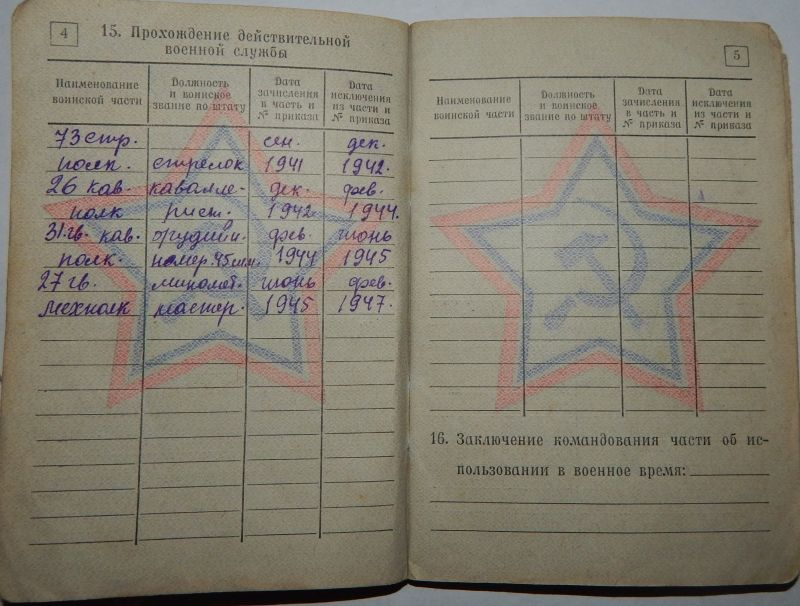 4
15. Прохождение действительной
военной службы
Наименование воинской части
Должность и воинское звание по штату
Дата зачисления в часть и № приказа
Дата исключения из части и № приказа
73 стр. сен. дек.
полк. стрелок 1941 1942.
26 кав. кавалле- дек. фев.
полк рист. 1942 1944.
31 гв. кав. орудийн. фев. июнь
полк. номер 45 мм. 1944 1945
27 гв. миномет. июнь фев.
мехполк мастер. 1945 1947.
5
Наименование воинской части
Должность и воинское звание по штату
Дата зачисления в часть и № приказа
Дата исключения из части и № приказа
16. Заключение командования части об ис-
пользовании в военное время: